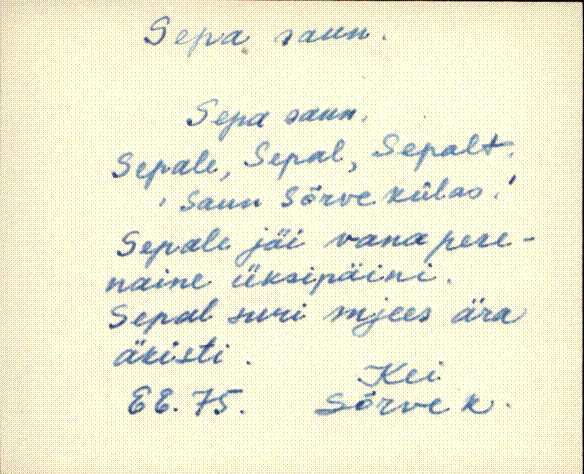 Sepa saun.
Sepa saun.
Sepale, Sepal, Sepalt.
'Saun Sõrve külas.'
Sepale jäi vana pere-
naine üksipäini.
Sepal suri mjees ära
äkisti.
Kei
EE. 75. Sõrve k.